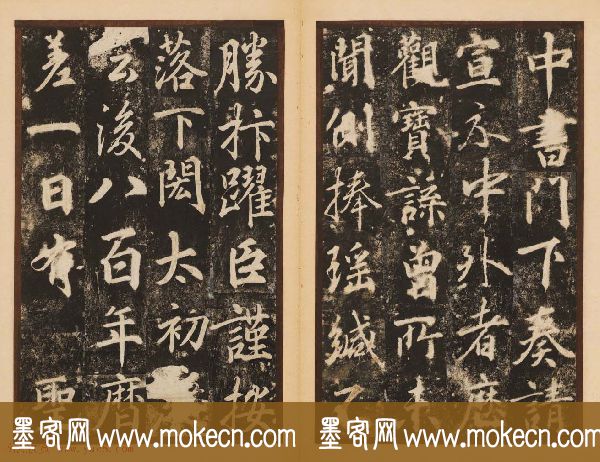 中書門下奏請
宣示中外者歷
觀寶諜曾所未
聞側捧瑤緘不
勝抃躍臣謹按
落下閎太初
云後八百年曆
差一日有聖
墨客网 www.mokecn.com
墨客网 www.mokecn.com